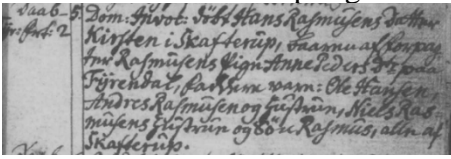 Dom: Invoc: döbt Hans Rasmusens Datter
Kirsten i Skafterup, baaren af forpag
ter Rasmusens Pige Anne Peders D: paa
Fyrendal, faddere vare: Ole Hansen
Andres Rasmusen og Hustrue, Niels Ras
musens Hustrue og Rasmus, alle af
Skafterup.